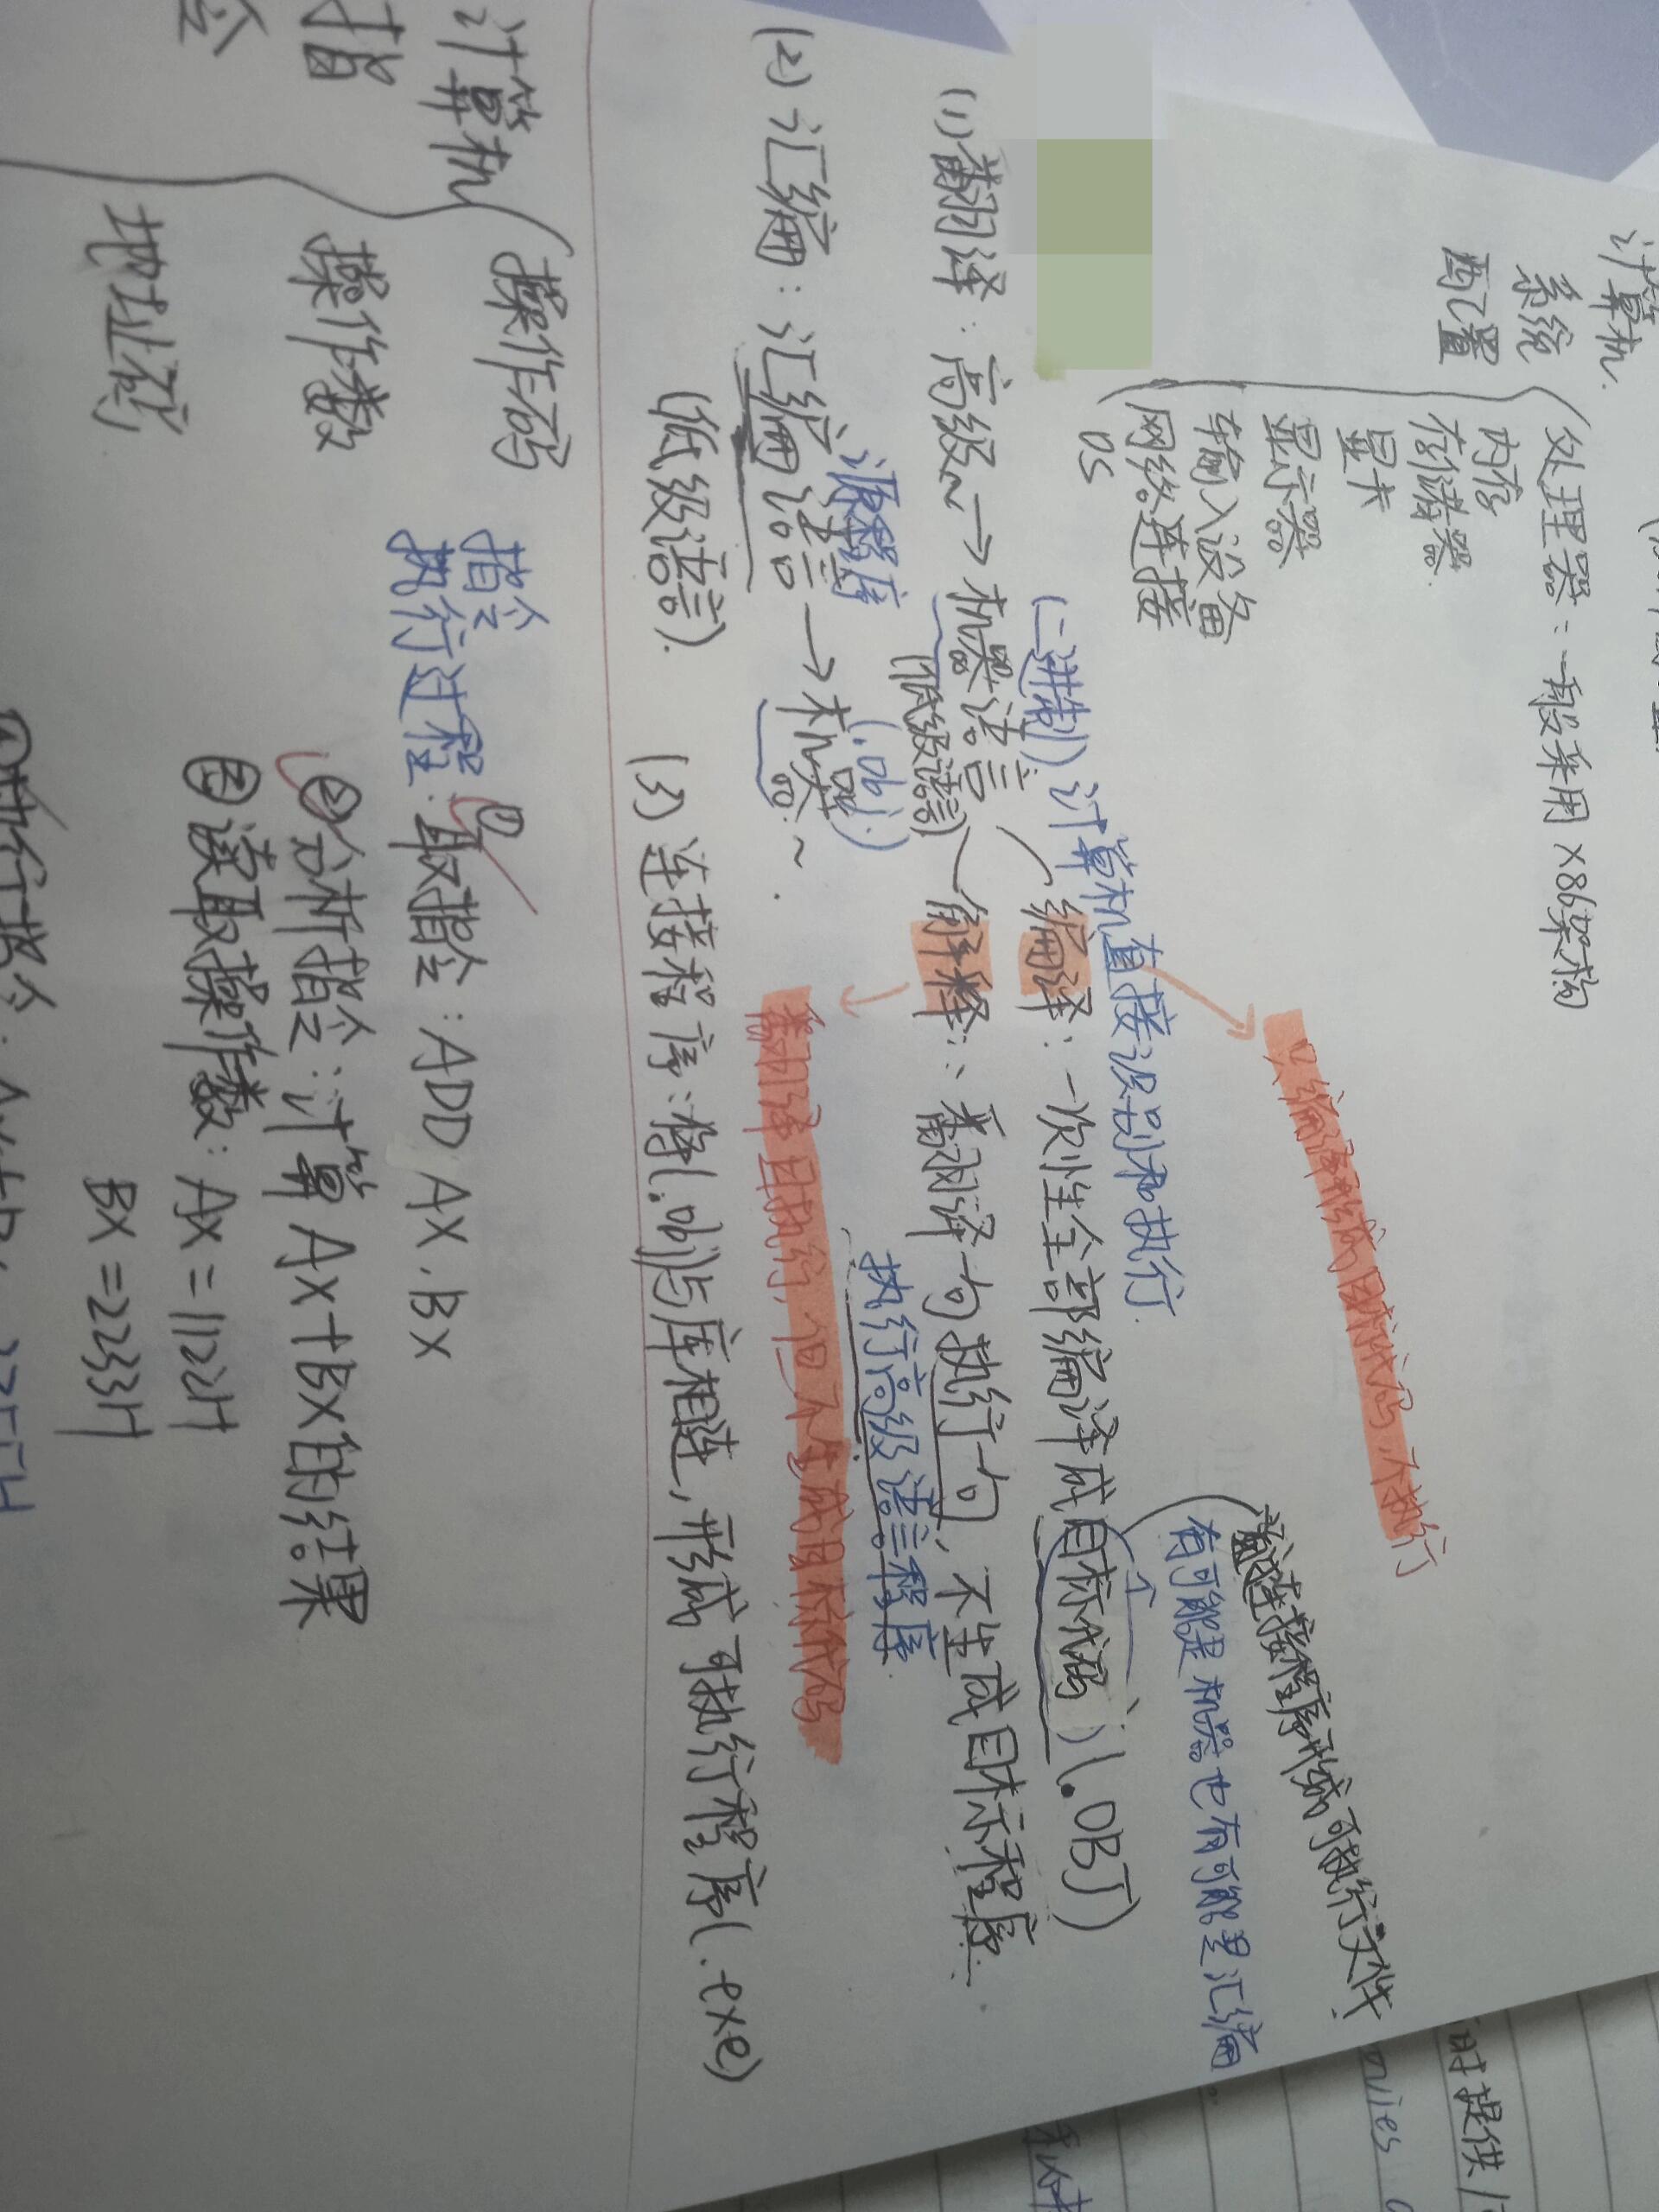 计算机
系统
配置
处理器：一般采用X86架构
内存
存储器
显卡
显示器
输入设备
网络连接
OS
只编译形成目标代码，不执行
通过连接程序形成可执行文件
有可能是机器也有可能是汇编
(二进制) 计算机直接识别和执行
(1) 翻译：高级~→机器语言
(低级语言)
编译：一次性全部编译成目标代码 (.OBJ)
解释：翻译一句执行一句，不生成目标程序
执行高级语言程序
翻译且执行，但不生成目标代码
源程序
(.obj)
(2) 汇编：汇编语言→机器~
(低级语言)
(3) 连接程序：将(.obj)与库相连，形成可执行程序(.exe)
计算机
指
令
操作码
操作数
地址码
指令
执行过程：①取指令：ADD AX,BX
②分析指令：计算AX+BX的结果
③读取操作数：AX=1122H
BX=2233H
④执行指令：
时提供